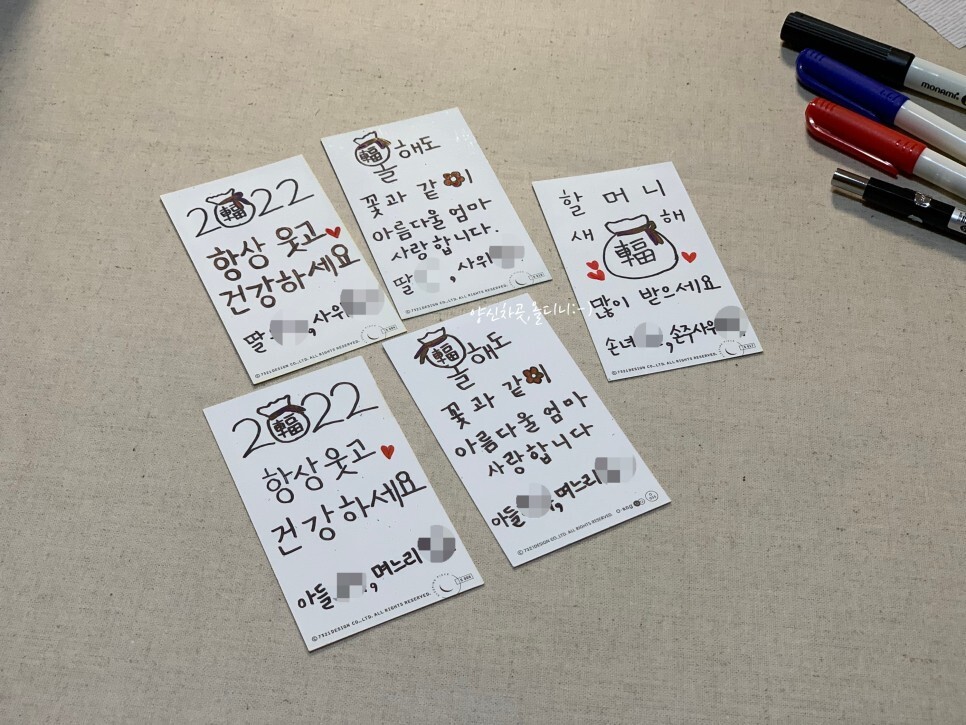 2輻22
항상 웃고
건강하세요
딸 , 사위
ⓒ7321DESIGN CO.,LTD. ALL RIGHTS RESERVED.
輻
올 해도
꽃과 같 이
아름다울 엄마
사랑합니다.
딸 , 사위
ⓒ7321DESIGN CO.,LTD. ALL RIGHTS RESERVED.
할 머 니
새 해
輻
많이 받으세요
손녀 , 손주사위 .
ⓒ7321DESIGN CO.,LTD. ALL RIGHTS RESERVED.
양신차곳,올디니:-)
2輻22
항상 웃고
건강하세요
아들 , 며느리
ⓒ7321DESIGN CO.,LTD. ALL RIGHTS RESERVED.
輻
올 해도
꽃과 같 이
아름다울 엄마
사랑합니다
아들 , 며느리
ⓒ7321DESIGN CO.,LTD. ALL RIGHTS RESERVED.
monami